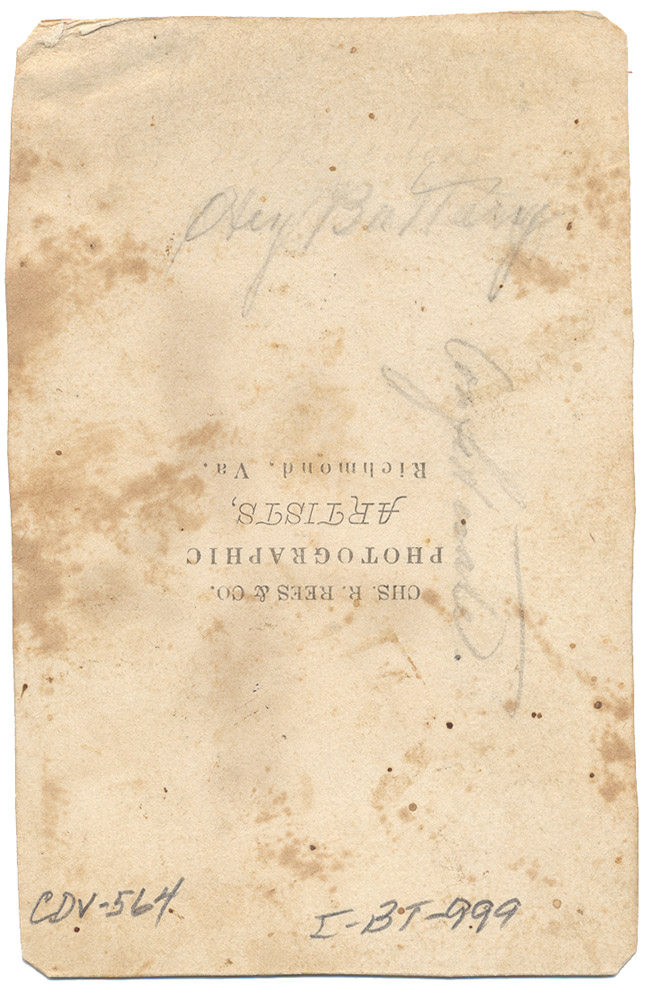 Battery
CHS. R. REES & CO.
PHOTOGRAPHIC
ARTISTS,
Richmond, Va.
CDV-564
I-BT-999